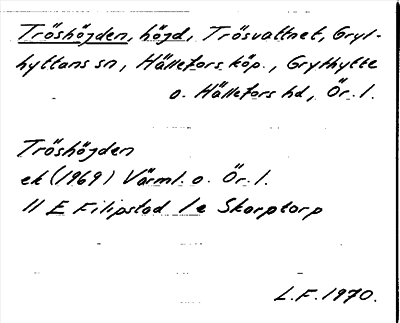 Tröshöjden, höjd, Trösvattnet, Gryt-
hyttans sn, Hällefors köp., Grythytte
o. Hällefors hd, Ör. l.
Tröshöjden
ek (1969) Värml. o. Ör. l.
11 E Filipstad 1e Skarptorp
L.F. 1970.